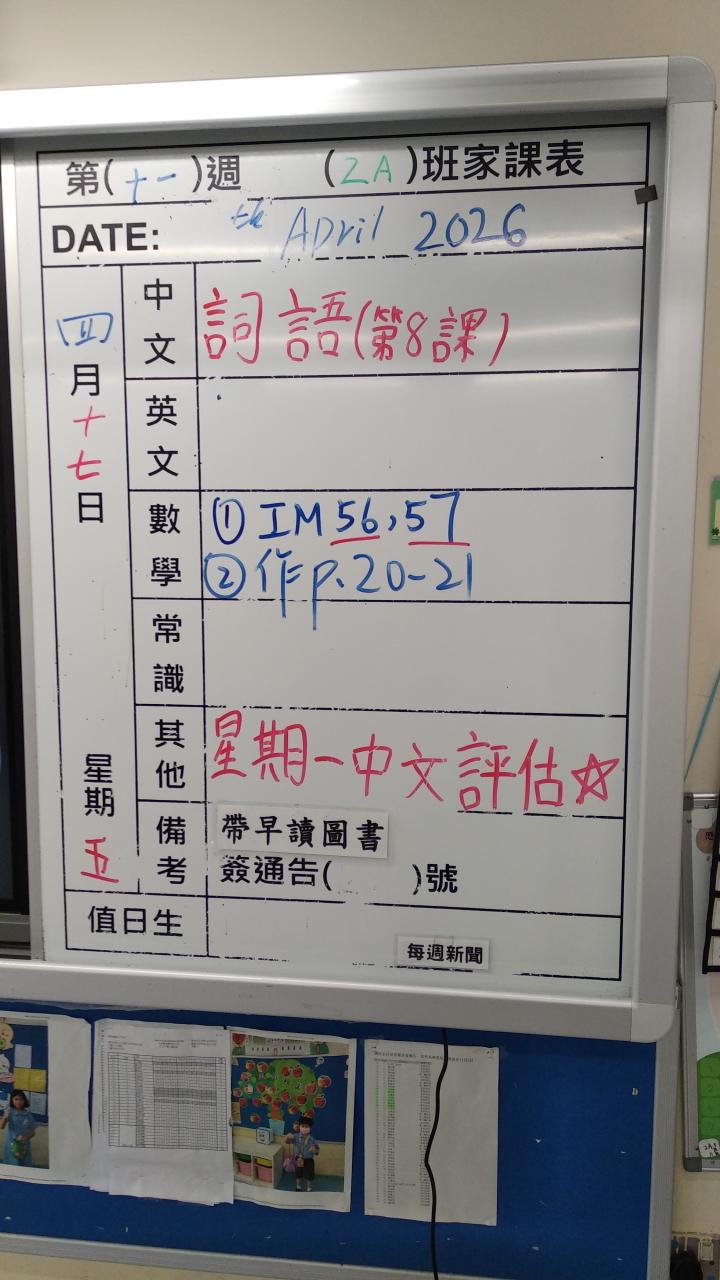 第(十一)週 (2A)班家課表
DATE: th April 2026
四月十七日 星期五
中文 詞語(第8課)
英文
數學 ①IM 56,57
②作p.20-21
常識
其他 星期一中文評估☆
備考 帶早讀圖書
簽通告( )號
值日生
每週新聞